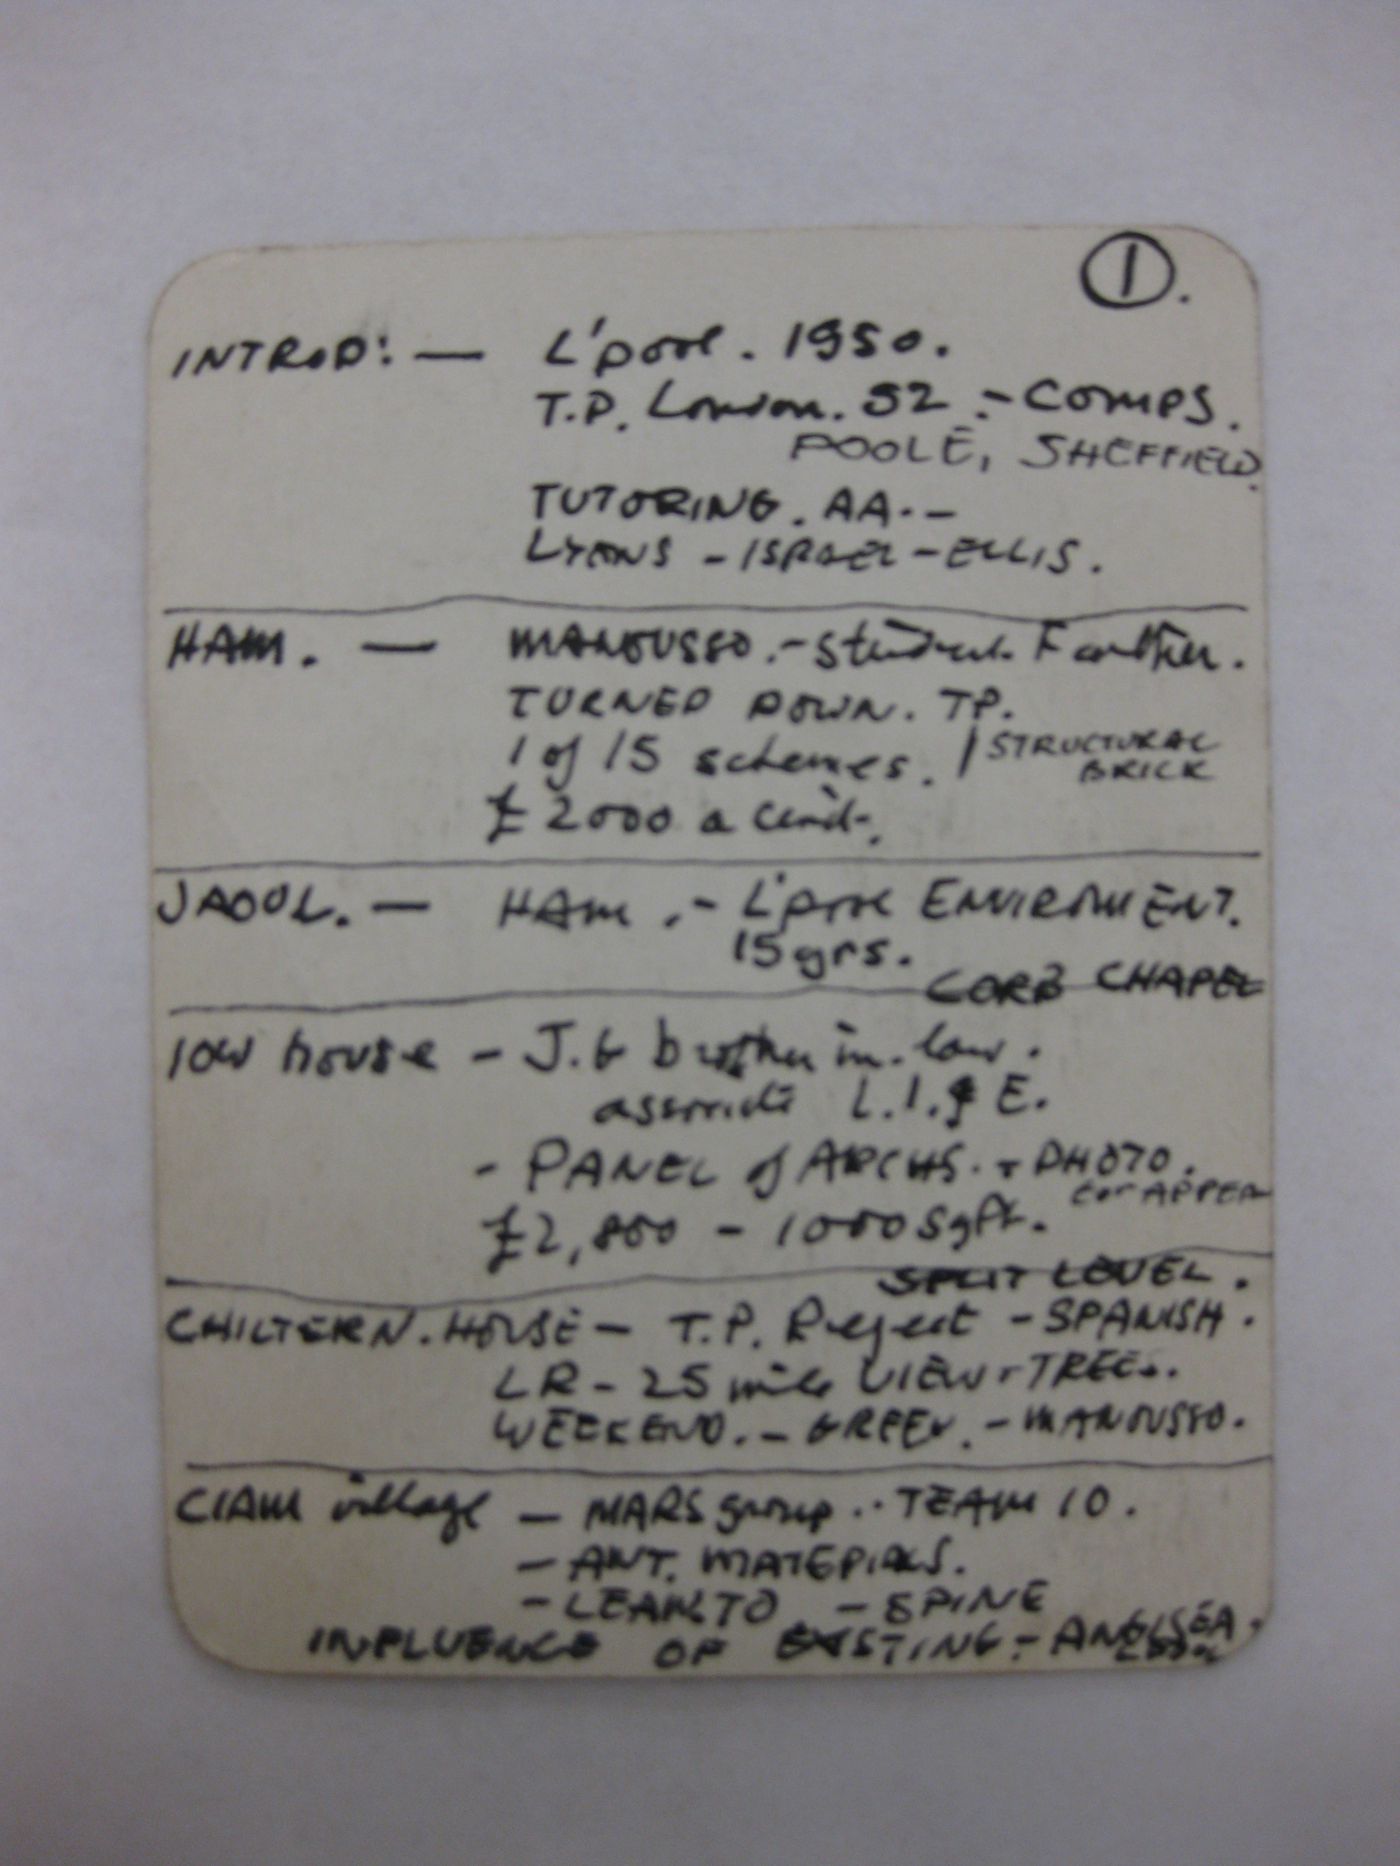 1.
INTROD: — L'pool. 1950.
T.P. London. 52 - COMPS.
POOLE, SHEFFIELD.
TUTORING. AA. -
LYONS - ISRAEL - ELLIS.
HAM. — MANOUSSO. - student Father.
TURNED DOWN. TP.
1 of 15 schemes. / STRUCTURAL
BRICK
£2000 a unit.
JAOUL. — HAM. - L'pool ENVIRONMENT.
15 yrs.
CORB CHAPEL
IOW house - J.G brother in. law.
associate L.I. & E.
- PANEL of ARCHS. + PHOTO.
£2,800 - 1000 sq ft.
SPLIT LEVEL.
CHILTERN. HOUSE - T.P. Reject - SPANISH.
LR - 25 mile VIEW + TREES.
WEEKEND. - GREEN. - MANOUSSO.
CIAM village — MARS group.. TEAM 10.
- ANT. MATERIALS.
- LEAN TO - SPINE
INFLUENCE OF EXISTING - ANGLSEA.